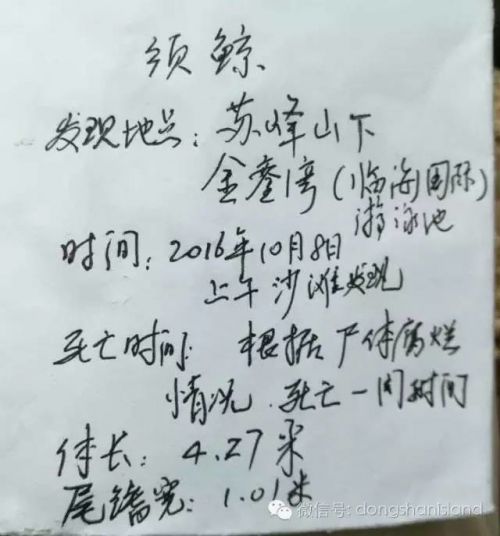 须鲸
发现地点：苏峰山下
金銮湾（临海国际）
游泳池
时间：2016年10月8日
上午沙滩发现
死亡时间：根据尸体腐烂
情况．死亡一周时间
体长：4.27米
尾鳍宽：1.01米
微信号: dongshanisland